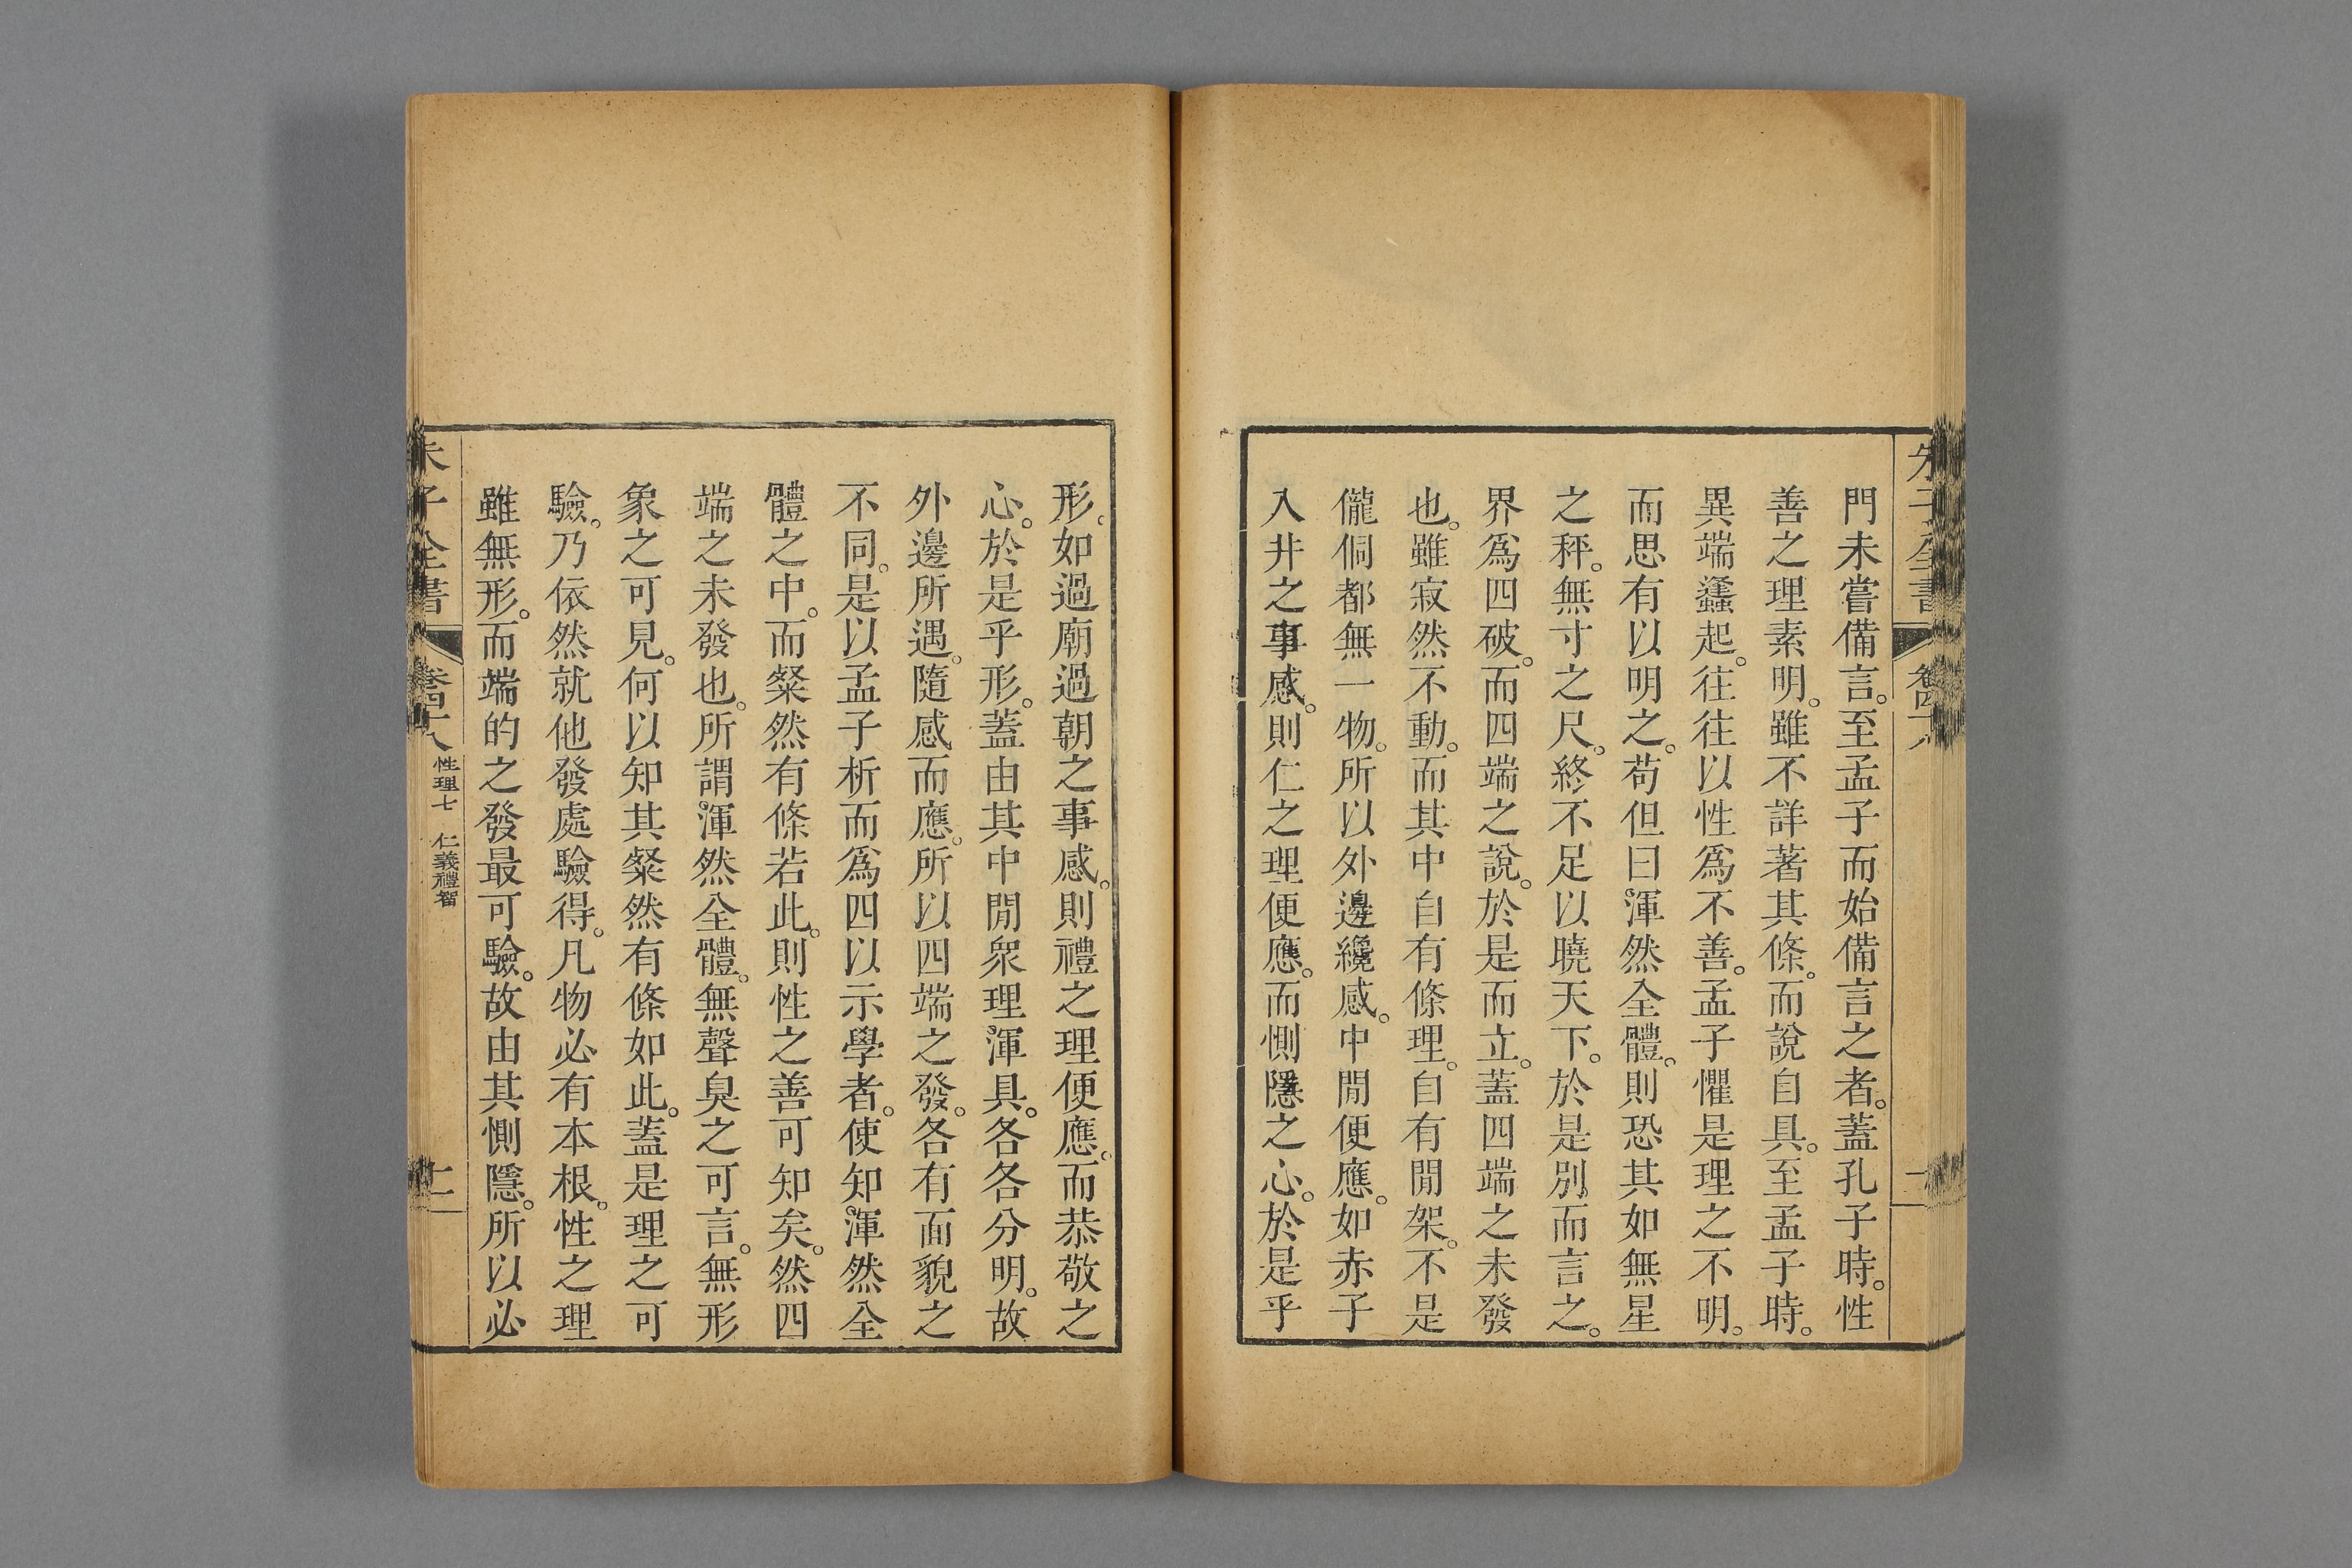 門未嘗備言。至孟子而始備言之者。蓋孔子時。性
善之理素明。雖不詳著其條。而說自具。至孟子時。
異端蠭起。往往以性爲不善。孟子懼是理之不明。
而思有以明之。苟但曰渾然全體。則恐其如無星
之秤。無寸之尺。終不足以曉天下。於是別而言之。
界爲四破。而四端之說。於是而立。蓋四端之未發
也。雖寂然不動。而其中自有條理。自有閒架。不是
儱侗都無一物。所以外邊纔感。中閒便應。如赤子
入井之事感。則仁之理便應。而惻隱之心。於是乎
形。如過廟過朝之事感。則禮之理便應。而恭敬之
心。於是乎形。蓋由其中閒衆理渾具。各各分明。故
外邊所遇。隨感而應。所以四端之發。各有面貌之
不同。是以孟子析而爲四以示學者。使知渾然全
體之中。而粲然有條若此。則性之善可知矣。然四
端之未發也。所謂渾然全體。無聲臭之可言。無形
象之可見。何以知其粲然有條如此。蓋是理之可
驗。乃依然就他發處驗得。凡物必有本根。性之理
雖無形。而端的之發最可驗。故由其惻隱。所以必
朱子全書
性理七 仁義禮智